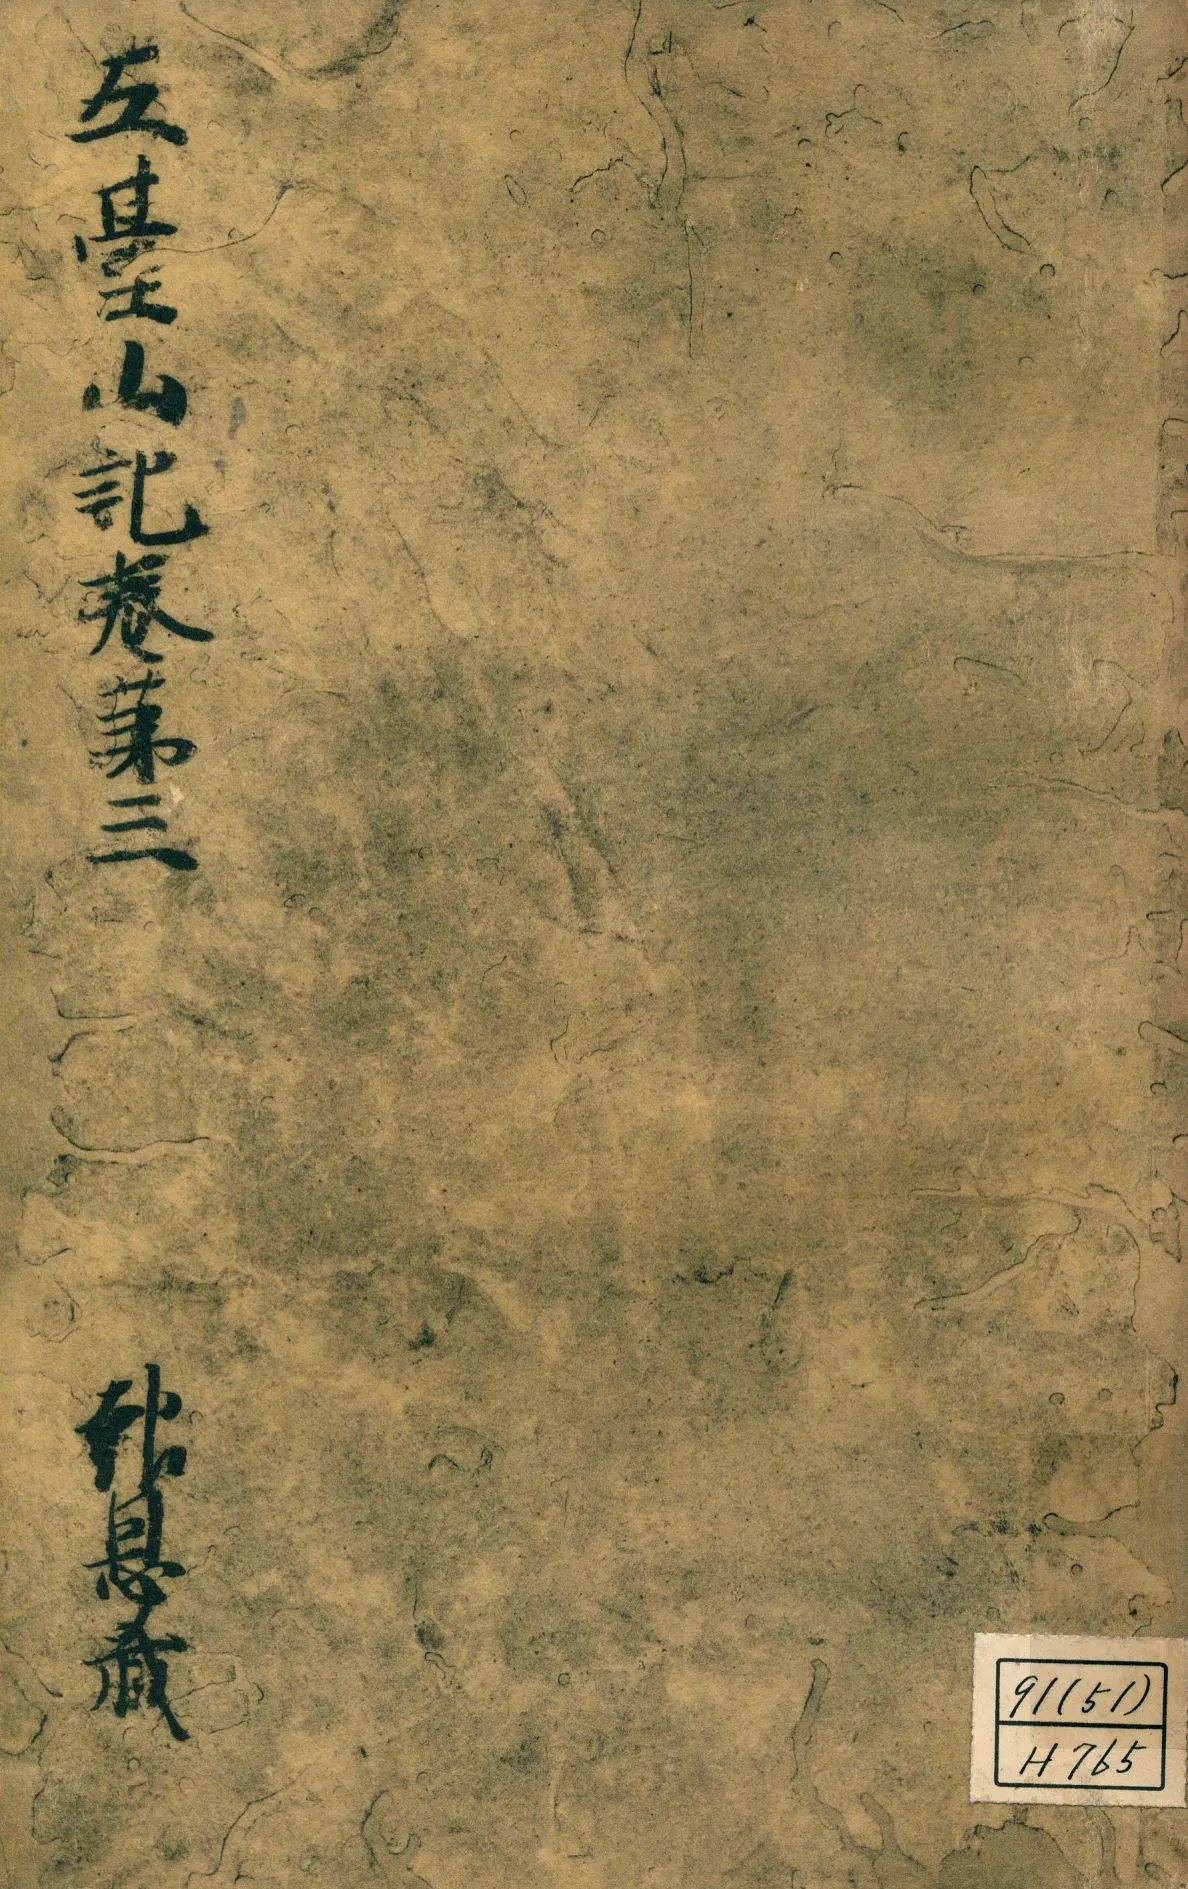 五臺山記卷第三
報恩蔵
91(51)
H765